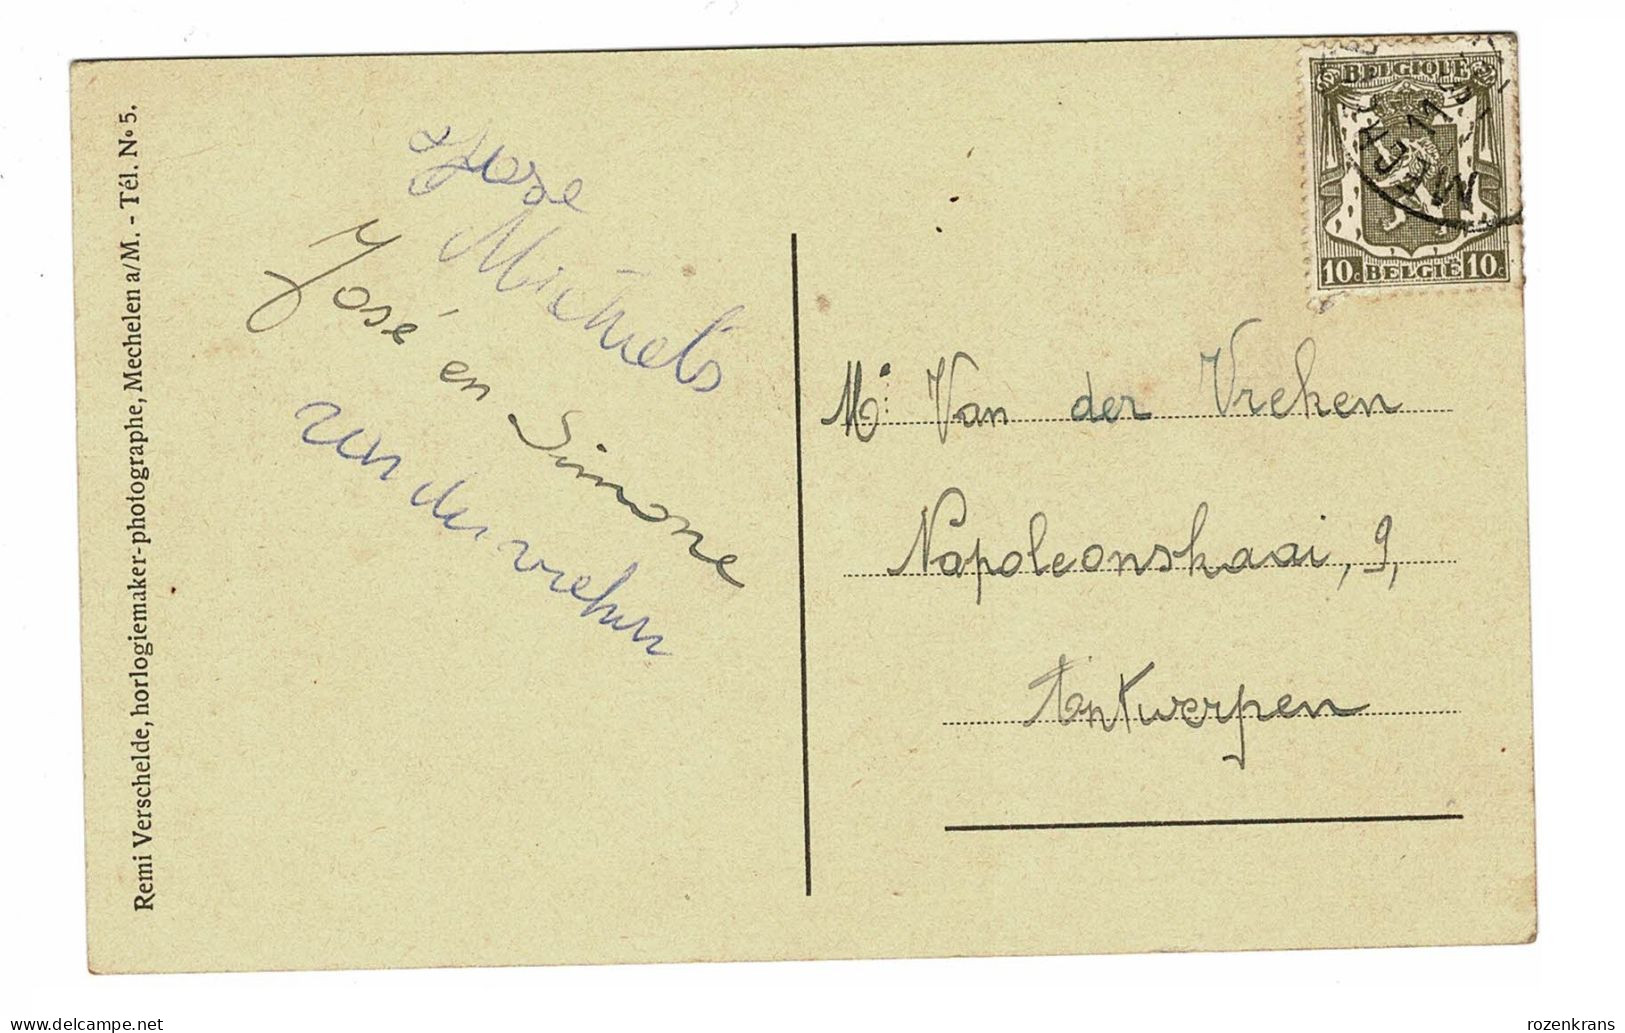 Remi Verschelde, horlogiemaker-photographe, Mechelen a/M. - Tél. Nº 5.
Jose
Michiels
José en Simone
van der vreken
BELGIQUE
MECHE
10c BELGIË 10c
Mr Van der Vreken
Napoleonskaai, 9,
Antwerpen
rozenkrans